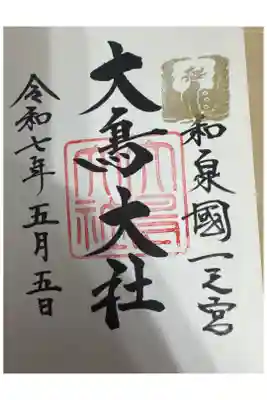 和泉國一之宮
大鳥大社
令和七年五月五日